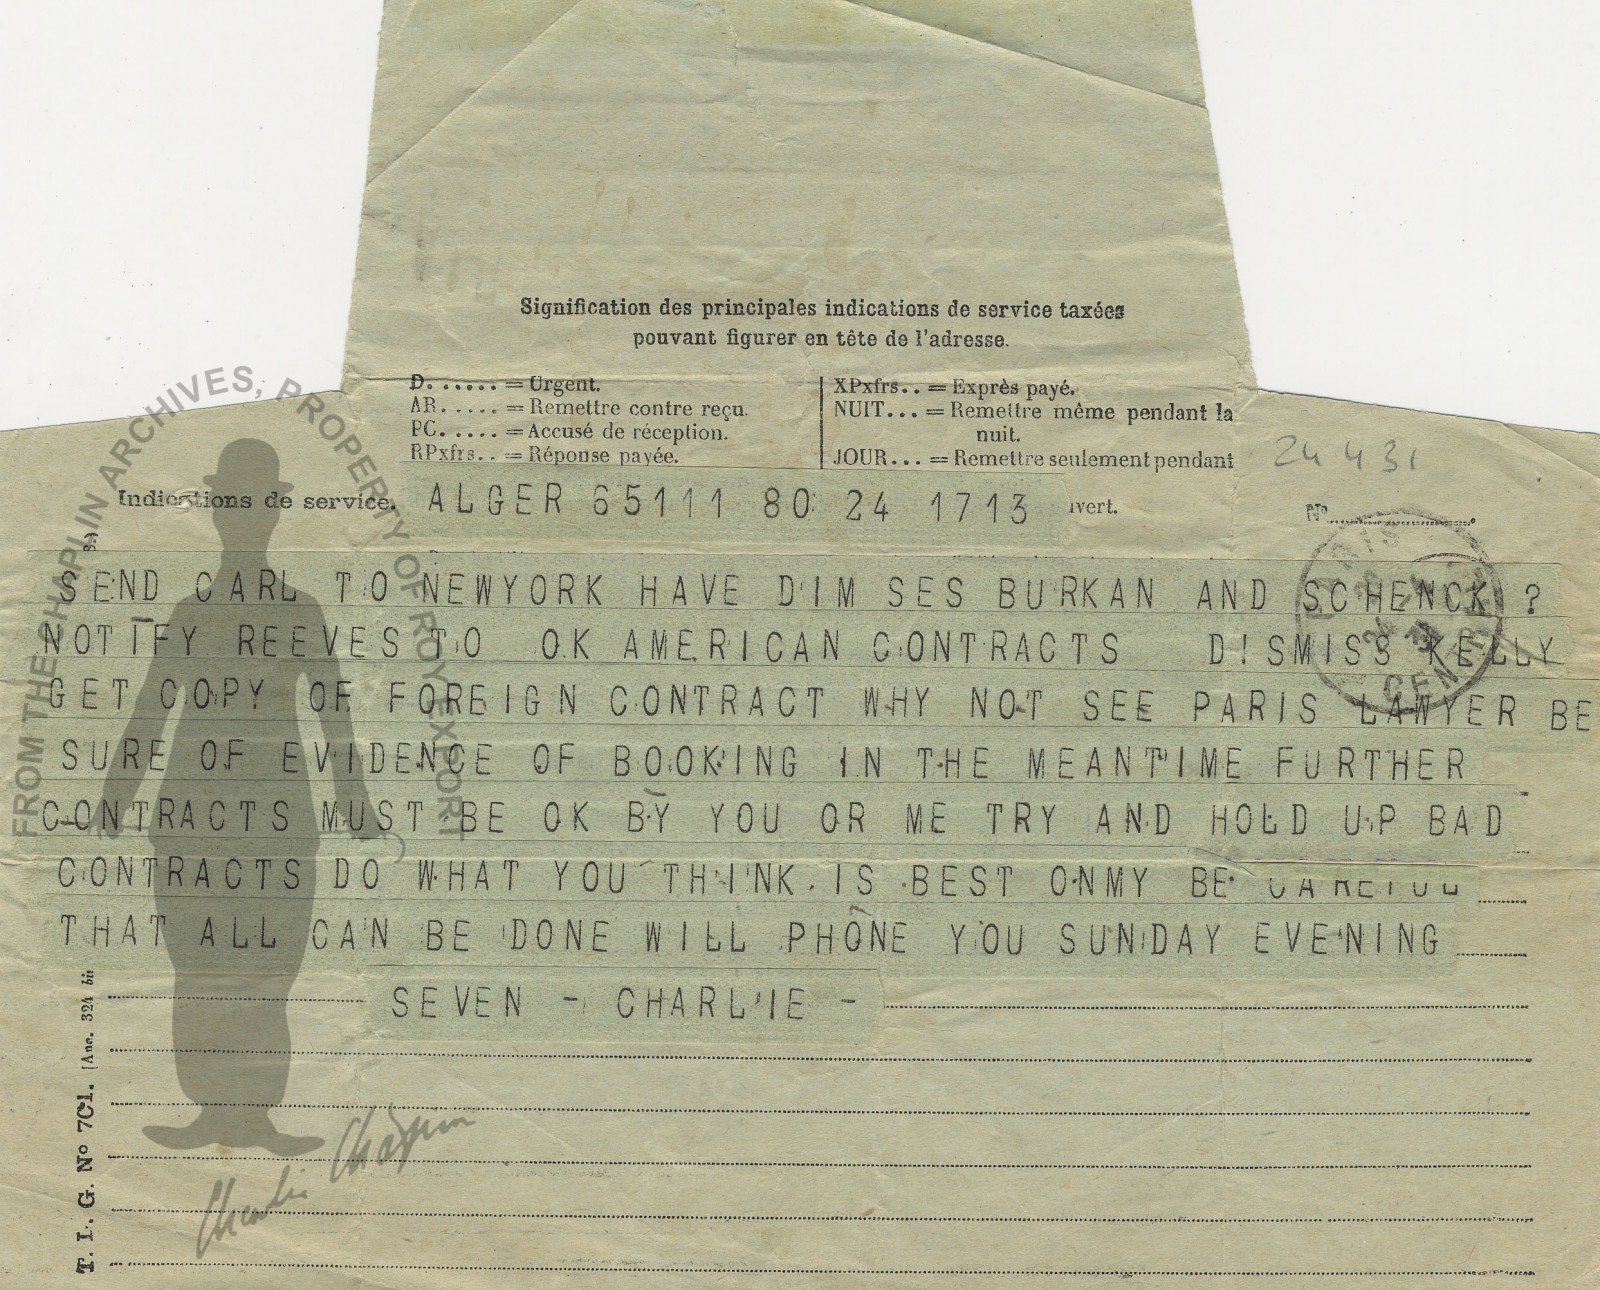 Signification des principales indications de service taxées
pouvant figurer en tête de l'adresse.
D...... = Urgent.
AR..... = Remettre contre reçu.
PC..... = Accusé de réception.
RPxfrs.. = Réponse payée.
XPxfrs.. = Exprès payé.
NUIT... = Remettre même pendant la
nuit.
JOUR... = Remettre seulement pendant
24 4 31
Indications de service. ALGER 65111 80 24 1713 uvert. N°
SEND CARL TO NEWYORK HAVE DIM SES BURKAN AND SCHENCK ?
NOTIFY REEVES TO OK AMERICAN CONTRACTS DISMISS KELLY
GET COPY OF FOREIGN CONTRACT WHY NOT SEE PARIS LAWYER BE
SURE OF EVIDENCE OF BOOKING IN THE MEANTIME FURTHER
CONTRACTS MUST BE OK BY YOU OR ME TRY AND HOLD UP BAD
CONTRACTS DO WHAT YOU THINK IS BEST ONMY BE CAREFUL
THAT ALL CAN BE DONE WILL PHONE YOU SUNDAY EVENING
SEVEN - CHARLIE -
PARIS
24
31
CENTRAL
T. I. G. N° 701. [Anc. 324 bis
FROM THE CHAPLIN ARCHIVES, PROPERTY OF ROY EXPORT
Charlie Chaplin